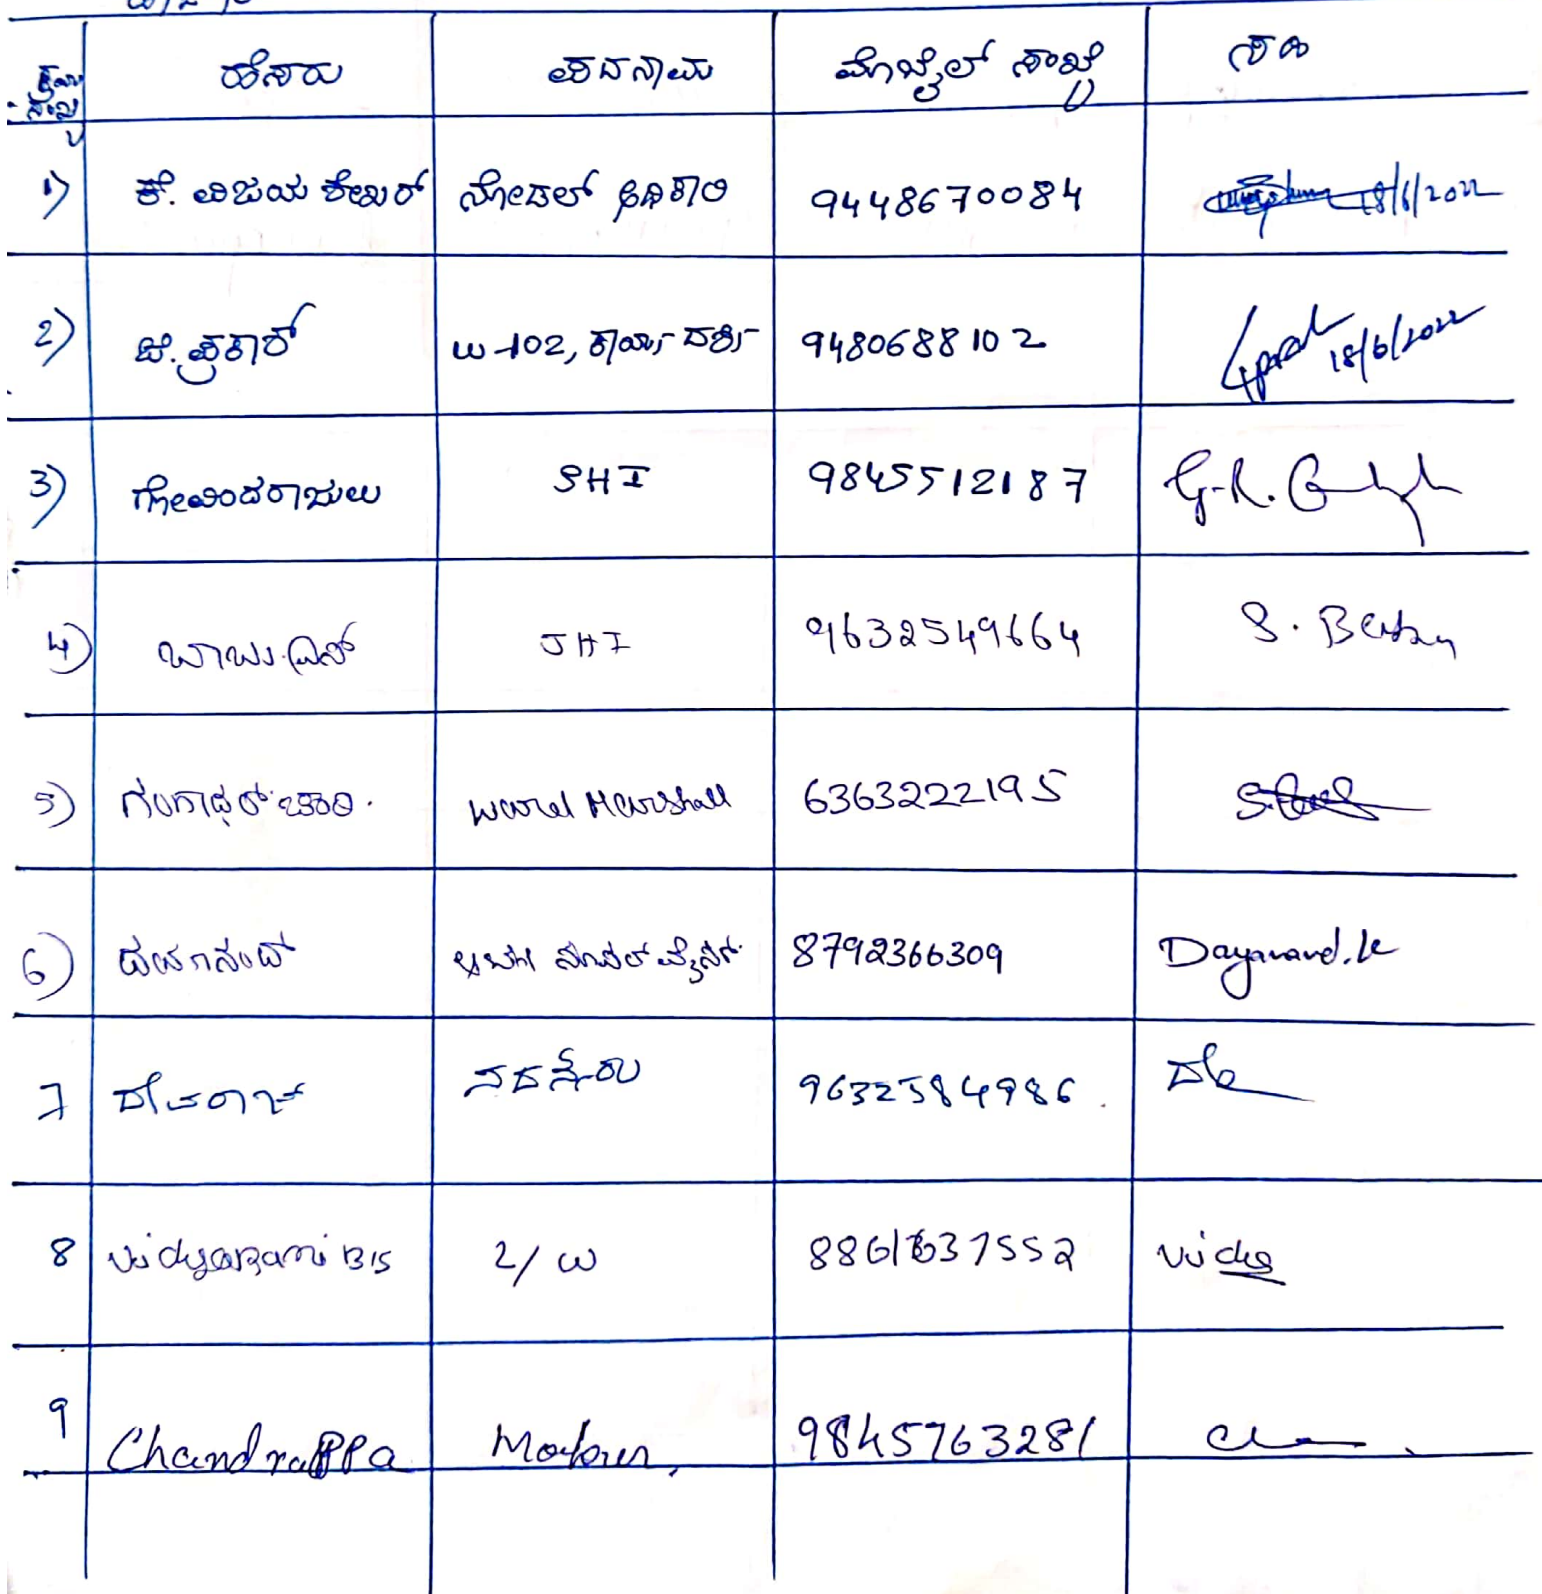 ಕ್ರಮ ಸಂಖ್ಯೆ ಹೆಸರು ಪದನಾಮ ಮೊಬೈಲ್ ಸಂಖ್ಯೆ ಸಹಿ
1) ಕೆ. ವಿಜಯ ಶೇಖರ್ ನೋಡಲ್ ಅಧಿಕಾರಿ 9448670084 18/6/2022
2) ಜೆ. ಪ್ರಕಾಶ್ W-102, ಕಾರ್ಯದರ್ಶಿ 9480688102 18/6/2022
3) ಗೋವಿಂದರಾಜುಲು SHI 9845512187 G.R.
4) ಬಾಬು.ಎಸ್ JHI 9632549664 S. Babu
5) ಗಂಗಾಧರ್ ಚಾರಿ. Ward Marshall 6363222195
6) ದಯಾನಂದ್ ಸೂಪರ್ ವೈಸರ್ 8792366309 Dayanand.k
7 ದೇವರಾಜ್ 9632384986. ದೇ
8 Vidyarani B S 2/W 8861637552 Vidya
9 Chandrappa 9845763281